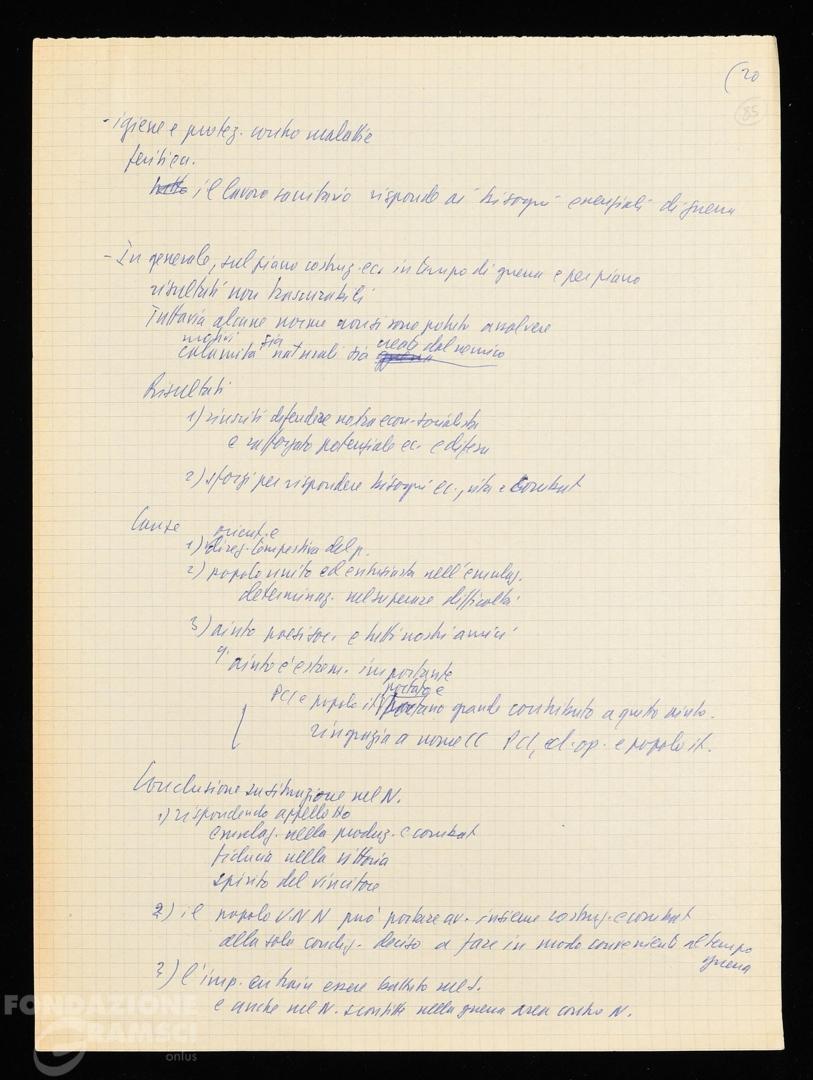 (20
85
- igiene e protez. contro malattie
feriti ecc.
tutto il lavoro sanitario risponde ai bisogni essenziali di guerra
- In generale, sul piano costruz. ec. in tempo di guerra e per piano
risultati non trascurabili
Tuttavia alcune norme non si sono potute assolvere
calamità naturali sia create dal nemico
Risultati
1) riusciti difendere nostra econ. socialista
e rafforzato potenziale ec. e difesa
2) sforzi per rispondere bisogni ec., vita e combat
Cause
orient. e
1) direz. tempestiva del p.
2) popolo unito ed entusiasta nell'emulaz.
determinaz. nel superare difficoltà
3) aiuto paesi soc. e tutti nostri amici
q. aiuto è estrem. importante
portato e
PCI e popolo it. portano grande contributo a questo aiuto.
ringrazia a nome CC PCI, cl. op. e popolo it.
Conclusione su situazione nel N.
1) rispondendo appello
emulaz. nella produz. e combat
fiducia nella vittoria
spirito del vincitore
2) il popolo V.N N può portare av. insieme costruz. e combat
alla sola condiz. deciso a fare in modo conveniente al tempo
guerra
3) l'imp. en train essere battuto nel S.
e anche nel N. sconfitte nella guerra aerea contro N.
FONDAZIONE
GRAMSCI
onlus